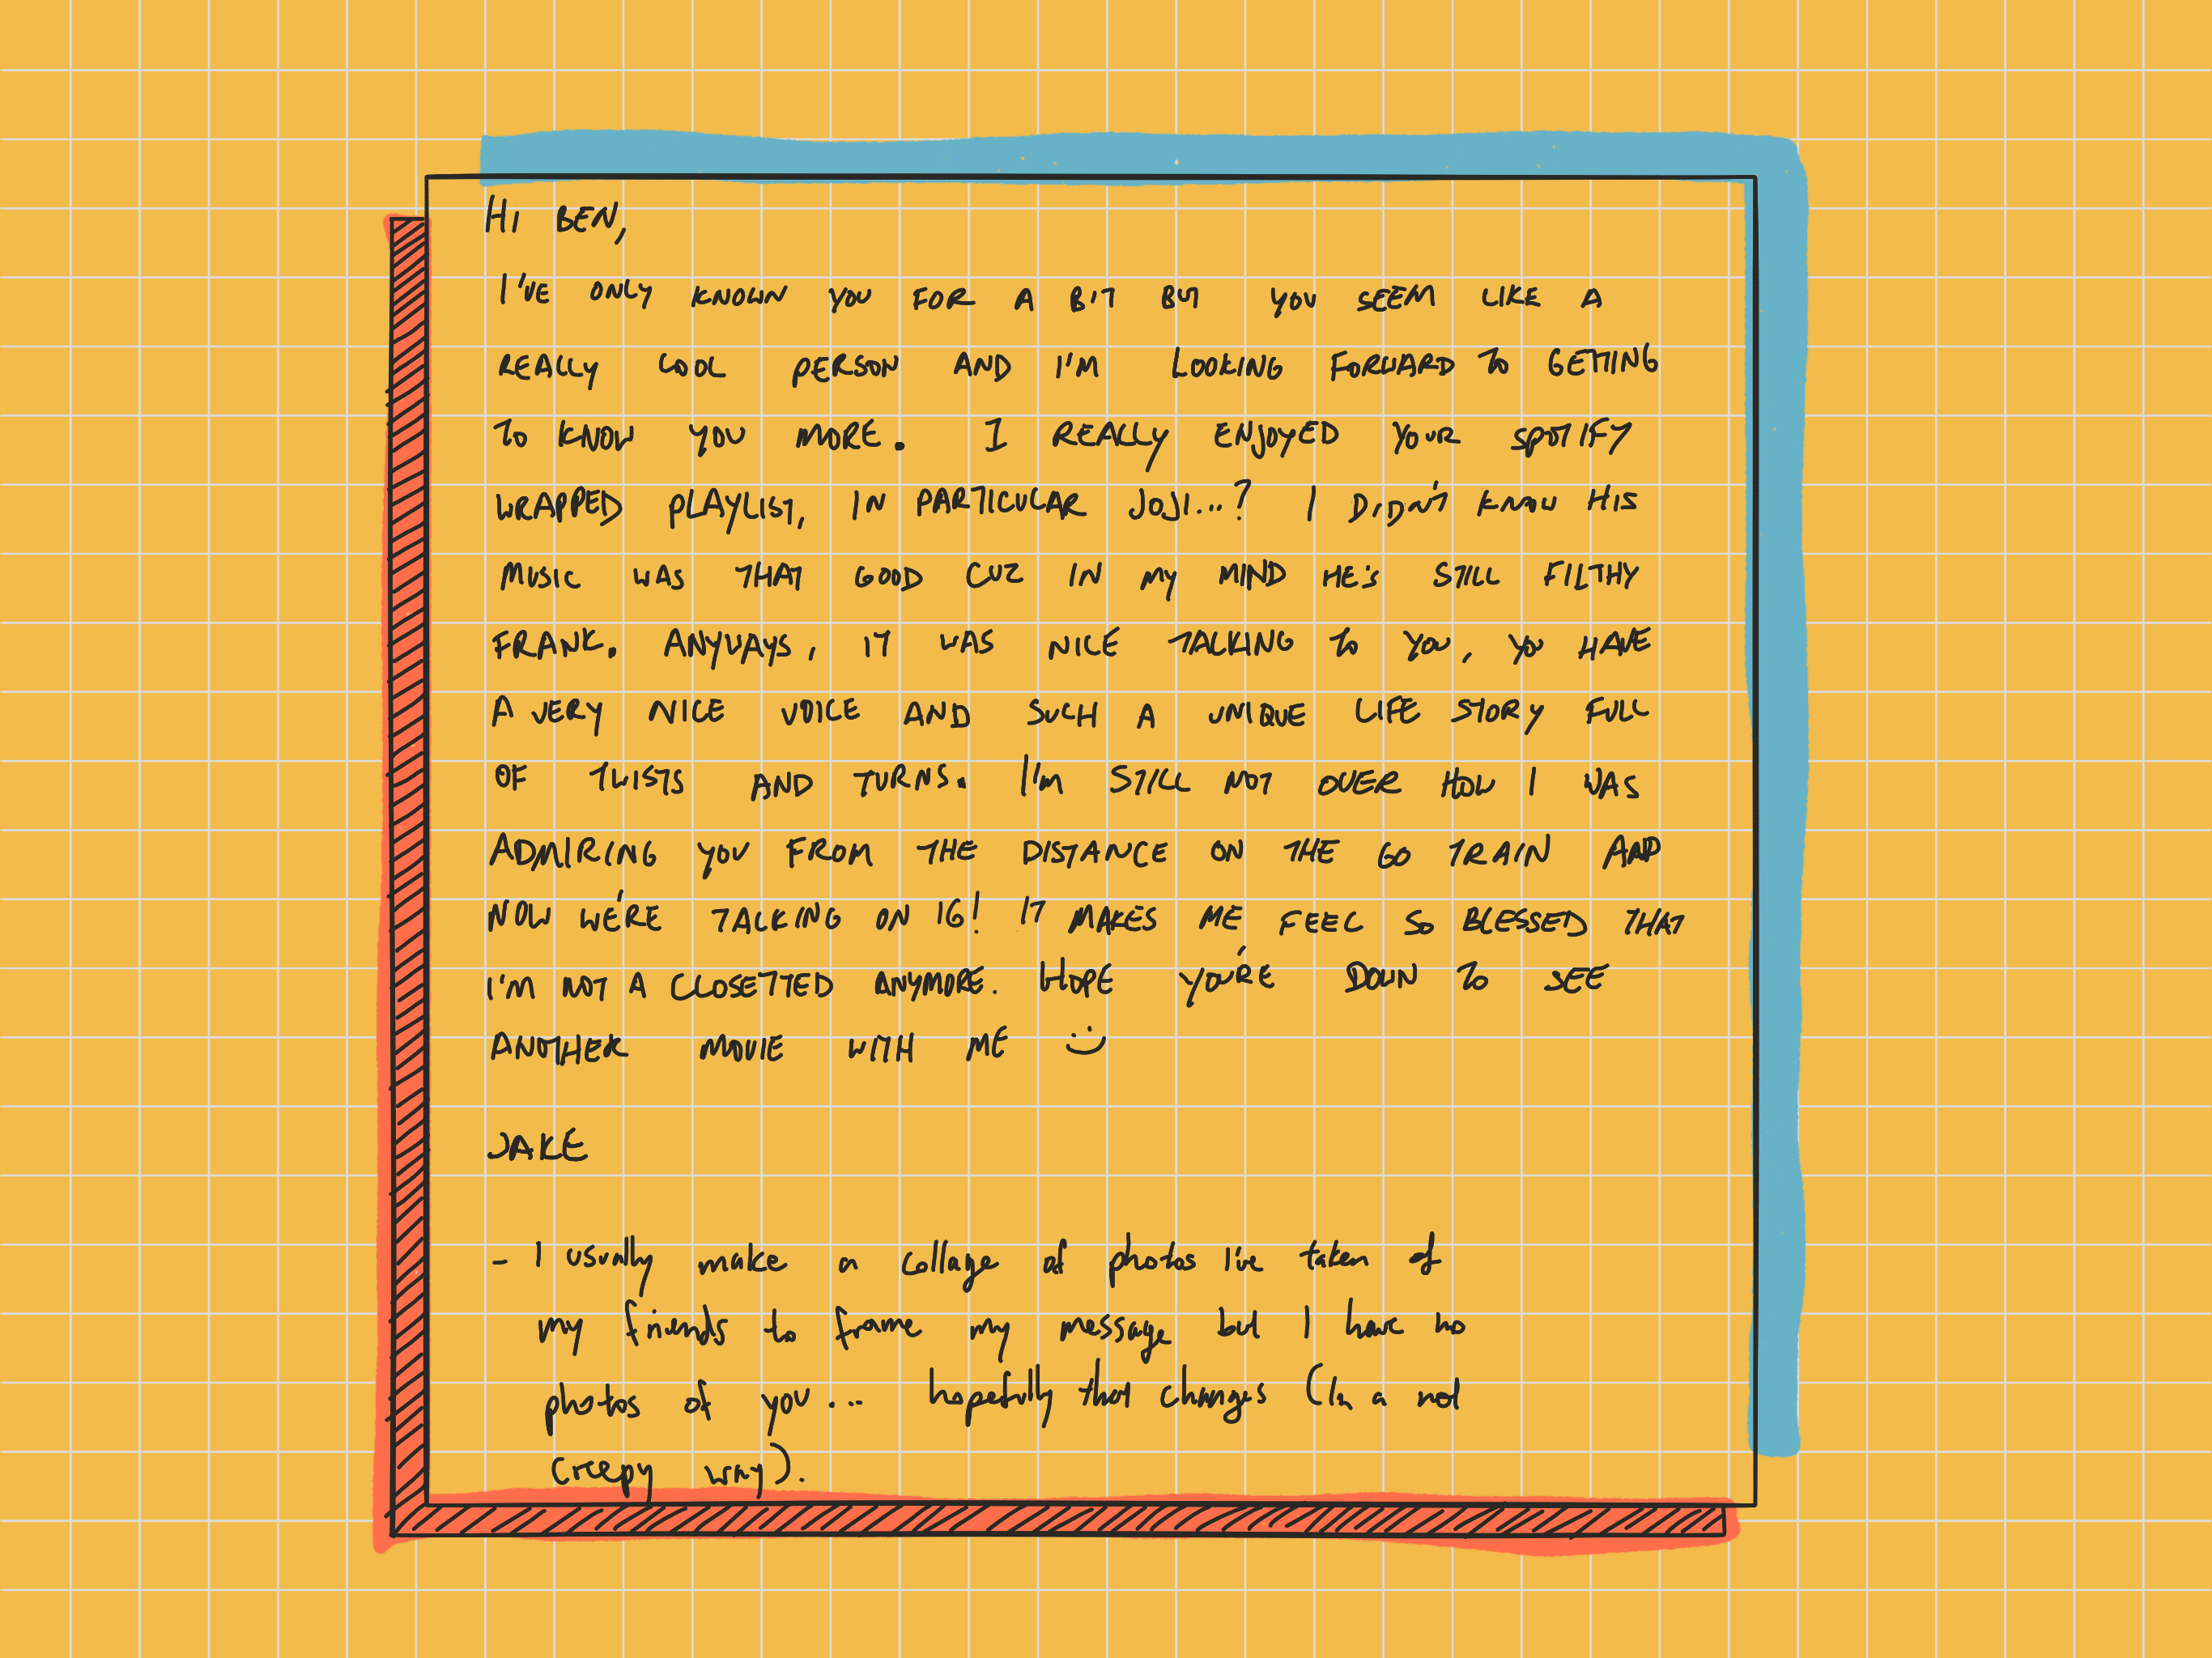 HI BEN,
I'VE ONLY KNOWN YOU FOR A BIT BUT YOU SEEM LIKE A
REALLY COOL PERSON AND I'M LOOKING FORWARD TO GETTING
TO KNOW YOU MORE. I REALLY ENJOYED YOUR SPOTIFY
WRAPPED PLAYLIST, IN PARTICULAR JOJI...? I DIDN'T KNOW HIS
MUSIC WAS THAT GOOD CUZ IN MY MIND HE'S STILL FILTHY
FRANK. ANYWAYS, IT WAS NICE TALKING TO YOU, YOU HAVE
A VERY NICE VOICE AND SUCH A UNIQUE LIFE STORY FULL
OF TWISTS AND TURNS. I'M STILL NOT OVER HOW I WAS
ADMIRING YOU FROM THE DISTANCE ON THE GO TRAIN AND
NOW WE'RE TALKING ON IG! IT MAKES ME FEEL SO BLESSED THAT
I'M NOT A CLOSETTED ANYMORE. HOPE YOU'RE DOWN TO SEE
ANOTHER MOVIE WITH ME :)
JAKE
- I usually make a collage of photos I've taken of
my friends to frame my message but I have no
photos of you... hopefully that changes (In a not
creepy way).